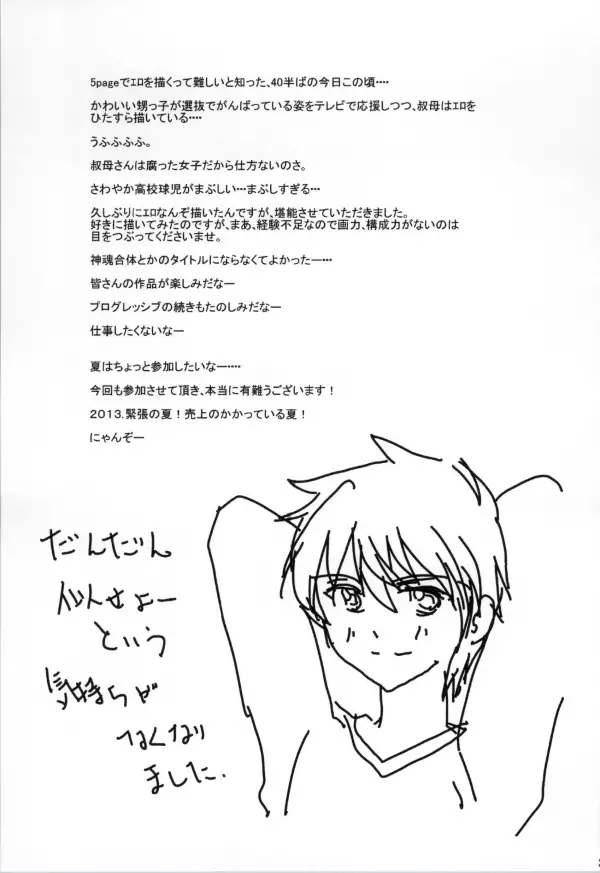 5pageでｴﾛを描くって難しいと知った、40半ばの今日この頃‥‥
かわいい甥っ子が選抜でがんばっている姿をテレビで応援しつつ、叔母はｴﾛを
ひたすら描いている‥‥
うふふふふ。
叔母さんは腐った女子だから仕方ないのさ。
さわやか高校球児がまぶしい…まぶしすぎる…
久しぶりにｴﾛなんぞ描いたんですが、堪能させていただきました。
好きに描いてみたのですが、まあ、経験不足なので画力、構成力がないのは
目をつぶってくださいませ。
神魂合体とかのタイトルにならなくてよかったー…
皆さんの作品が楽しみだなー
プログレッシブの続きもたのしみだなー
仕事したくないなー
夏はちょっと参加したいなー‥‥
今回も参加させて頂き、本当に有難うございます！
２０１３．緊張の夏！売上のかかっている夏！
にゃんぞー
だんだん
似せよー
という
気持ちが
なくなり
ました.